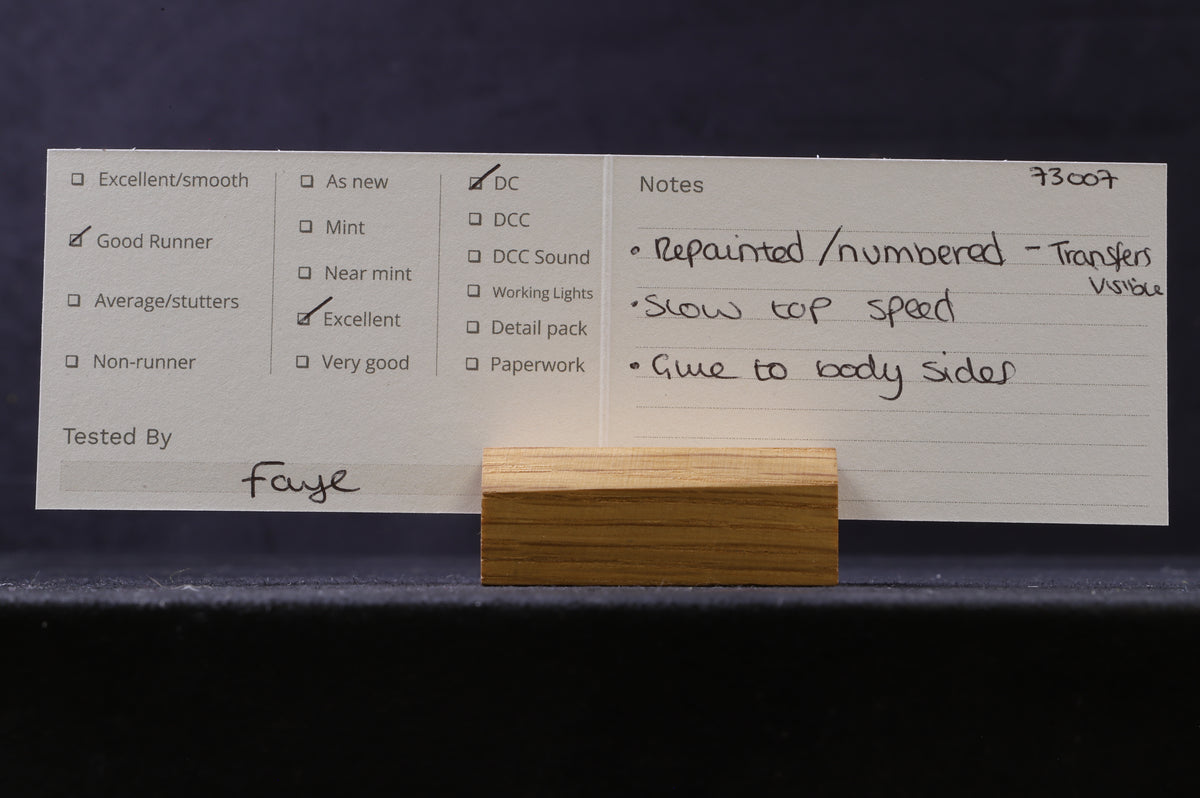 ☐ Excellent/smooth
☑ Good Runner
☐ Average/stutters
☐ Non-runner
☐ As new
☐ Mint
☐ Near mint
☑ Excellent
☐ Very good
☑ DC
☐ DCC
☐ DCC Sound
☐ Working Lights
☐ Detail pack
☐ Paperwork
Tested By
Faye
Notes
73007
• Repainted/numbered - Transfers
visible
• Slow top speed
• Glue to body sides